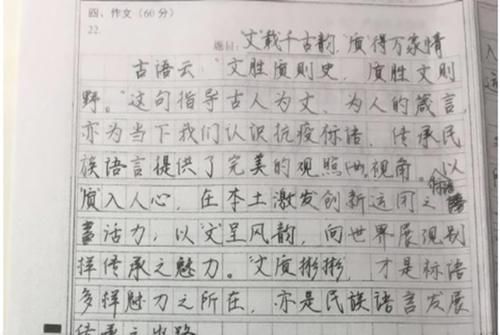 四、作文（60分）
22.
题目："文"载千古韵，"质"得万家情
古语云"文胜质则史，质胜文则
野。"这句指导古人为文，为人的箴言，
亦为当下我们认识抗疫标语，传承民
族语言提供了完美的观照两视角。以
"质"入人心，在本土激发创新运用之标语
活力，以"文"呈风韵，向世界展现别
样传承之魅力。"文质彬彬"，才是标语
多样魅力之所在，亦是民族语言发展
传承之出路